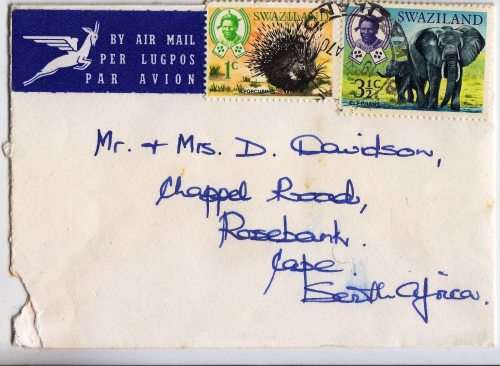 BY AIR MAIL
PER LUGPOS
PAR AVION
SWAZILAND
1c
PORCUPINE
SWAZILAND
3½c
ELEPHANT
Mr. + Mrs. D. Davidson,
Chappel Road,
Rosebank.
Cape.
South Africa.